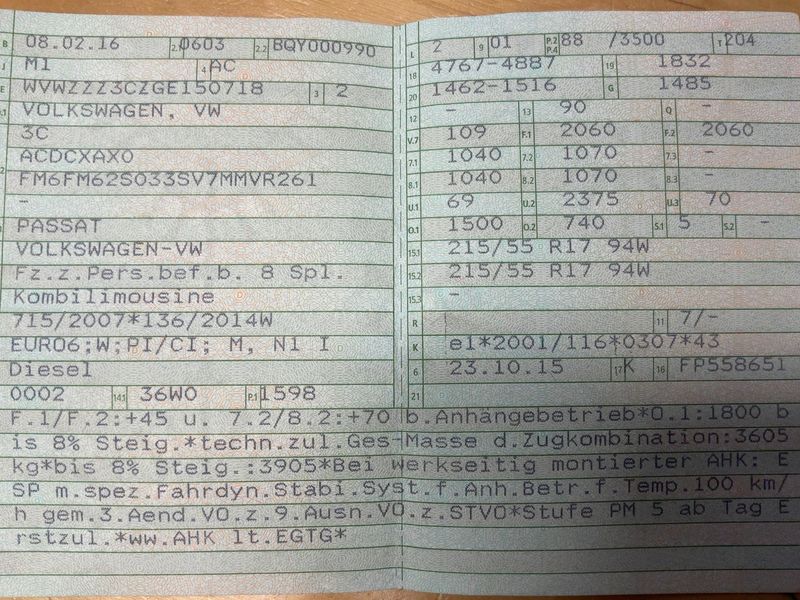 B 08.02.16 2.1 0603 2.2 BQY000990
J M1 4 AC
E WVWZZZ3CZGE150718 3 2
VOLKSWAGEN, VW
3C
ACDCXAX0
FM6FM62S033SV7MMVR261
-
PASSAT
VOLKSWAGEN-VW
Fz.z.Pers.bef.b. 8 Spl.
Kombilimousine
715/2007*136/2014W
EURO6;W;PI/CI; M, N1 I
Diesel
0002 14.1 36W0 P.1 1598
L 2 9 01 P.2 P.4 88 /3500 T 204
18 4767-4887 19 1832
20 1462-1516 G 1485
12 - 13 90 Q -
V.7 109 F.1 2060 F.2 2060
7.1 1040 7.2 1070 7.3 -
8.1 1040 8.2 1070 8.3 -
U.1 69 U.2 2375 U.3 70
O.1 1500 O.2 740 S.1 5 S.2 -
15.1 215/55 R17 94W
15.2 215/55 R17 94W
15.3 -
R 11 7/-
K e1*2001/116*0307*43
6 23.10.15 17 K 16 FP558651
21
F.1/F.2:+45 u. 7.2/8.2:+70 b.Anhängebetrieb*O.1:1800 b
is 8% Steig.*techn.zul.Ges-Masse d.Zugkombination:3605
kg*bis 8% Steig.:3905*Bei werkseitig montierter AHK: E
SP m.spez.Fahrdyn.Stabi.Syst.f.Anh.Betr.f.Temp.100 km/
h gem.3.Aend.VO.z.9.Ausn.VO.z.STVO*Stufe PM 5 ab Tag E
rstzul.*ww.AHK lt.EGTG*